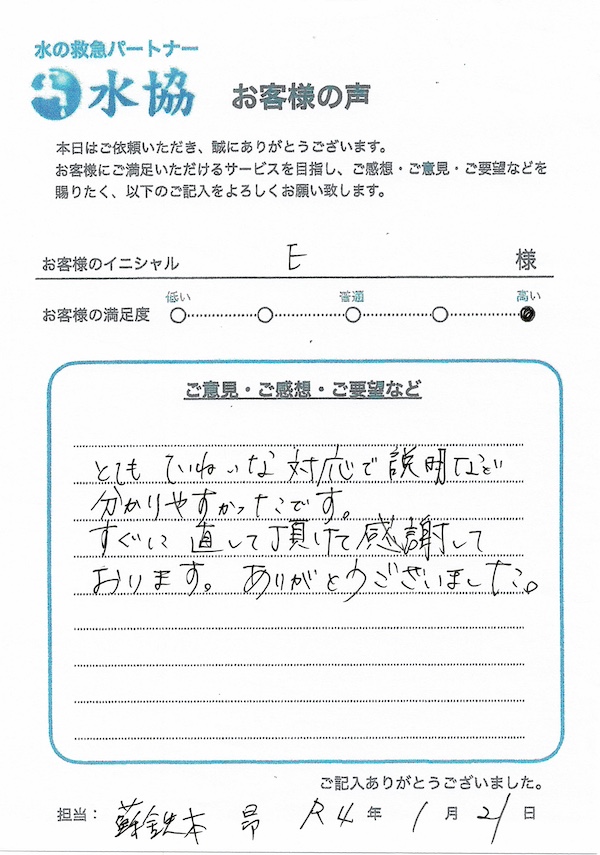 水の救急パートナー
水協 お客様の声
本日はご依頼いただき、誠にありがとうございます。
お客様にご満足いただけるサービスを目指し、ご感想・ご意見・ご要望などを
賜りたく、以下のご記入をよろしくお願い致します。
お客様のイニシャル E 様
低い 普通 高い
お客様の満足度
ご意見・ご感想・ご要望など
とても ていねいな 対応で 説明など
分かりやすかったです。
すぐに 直して頂けて 感謝して
おります。ありがとうございました。
ご記入ありがとうございました。
担当: 蘇鉄本 昂 R4年 1月21日